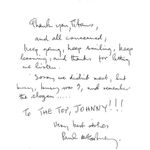 Thank you Titans,
and all concerned,
keep going, keep smiling, keep
learning, and thanks for letting
me listen.
Sorry we didn't meet, but
hurry, hurry was ?, and remember
the slogan .....
To THE TOP, JOHNNY!!!
Very best wishes
Paul McCartney